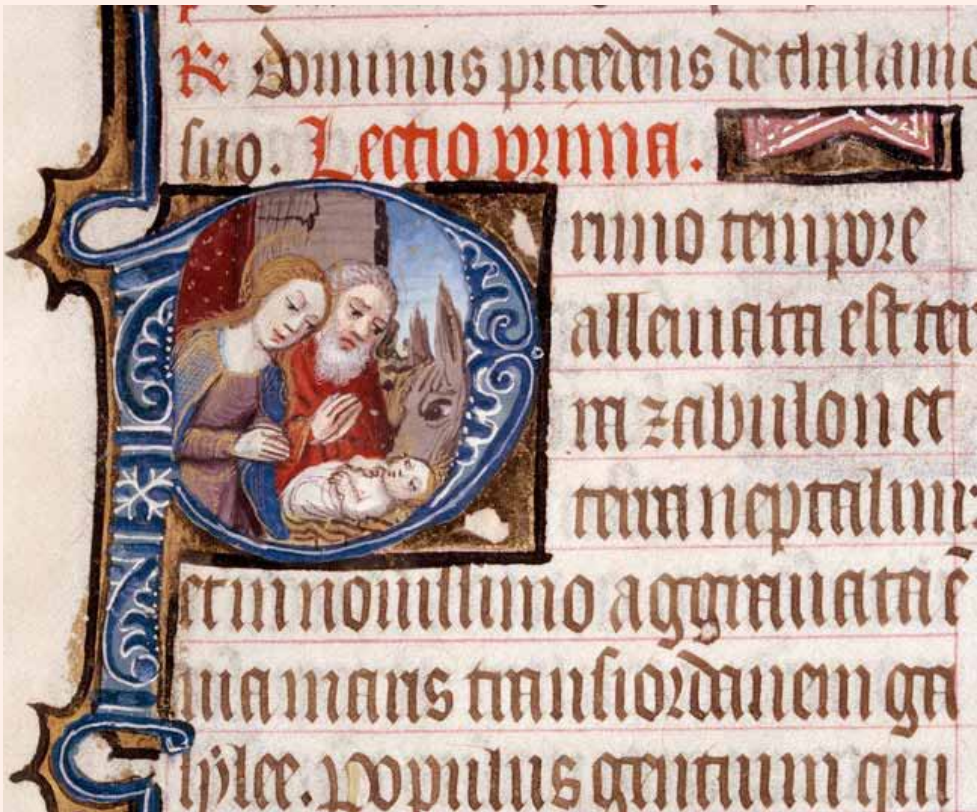 ℟ Dominus procedens de thalamo
suo. Lectio prima.
Primo tempore
alleuiata est ter
ra zabulon et
terra neptalim
et in nouissimo aggrauata ē
uia maris transiordanem ga
lylee. Populus gentium qui